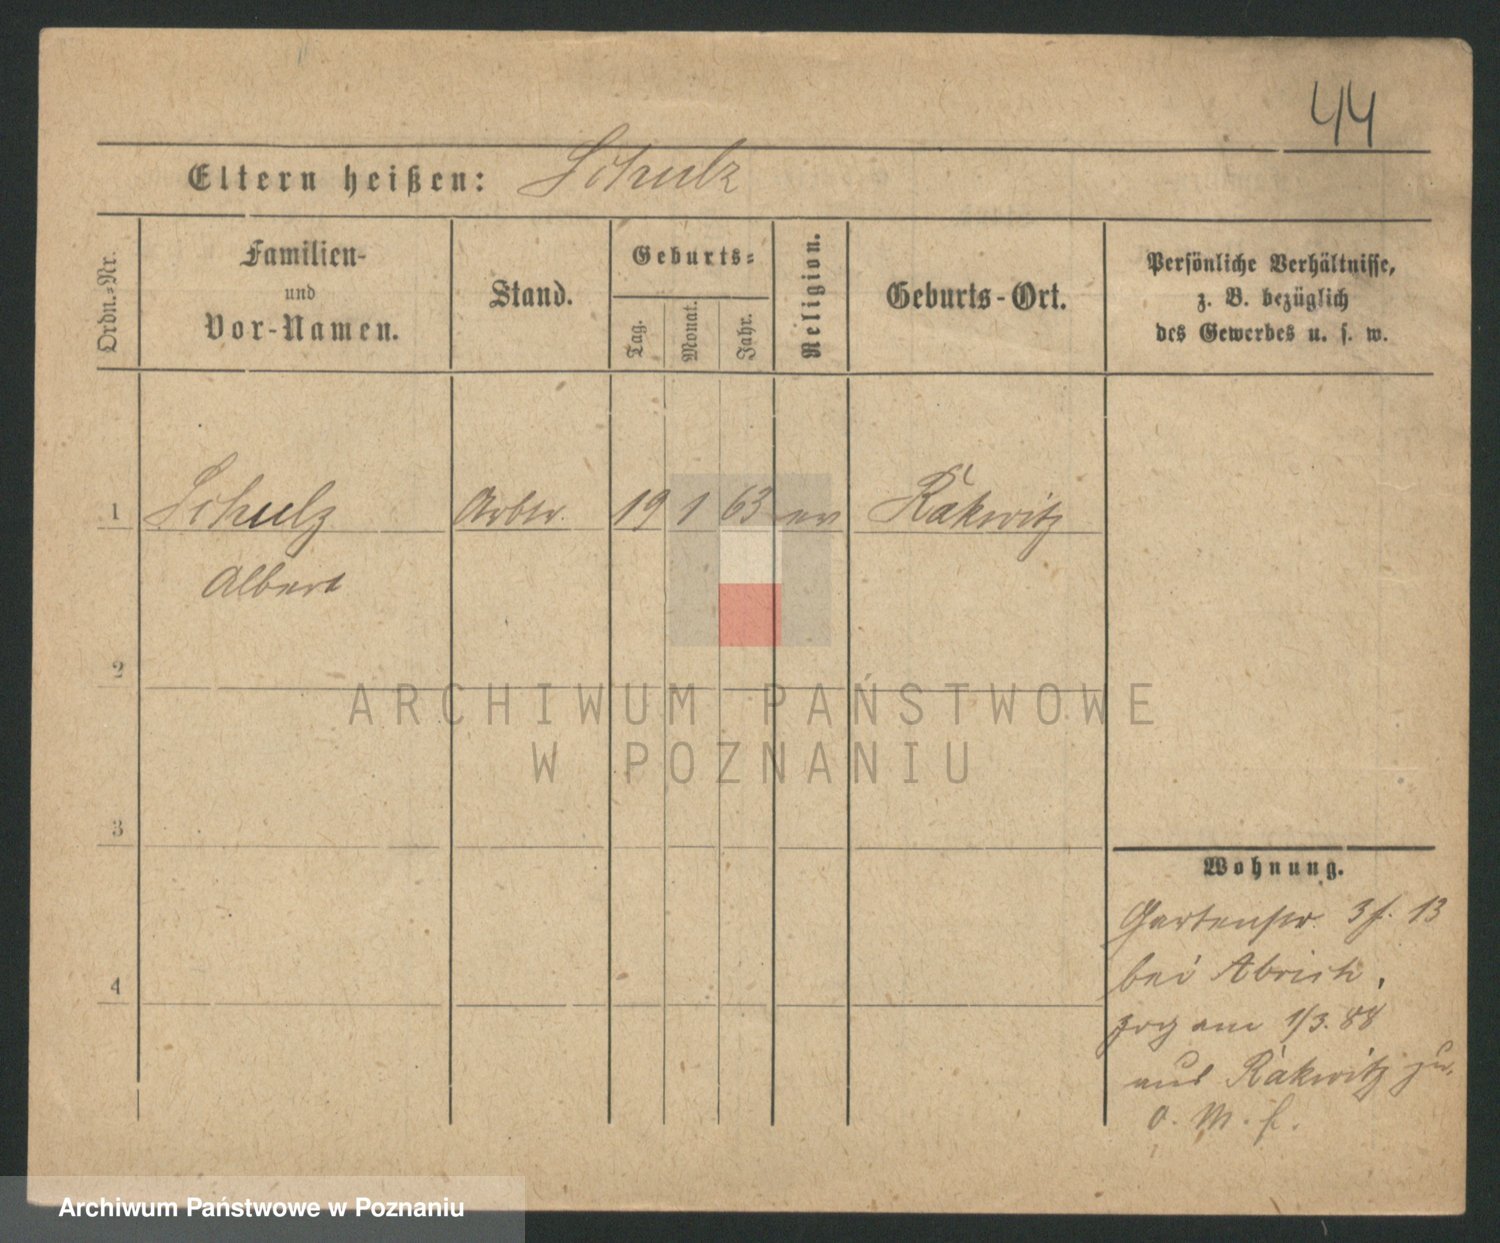 44
Eltern heißen: Schulz
Ordn.-Nr.
Familien-
und
Vor-Namen.
Stand.
Geburts-
Tag.
Monat.
Jahr.
Religion.
Geburts-Ort.
Persönliche Verhältnisse,
z. B. bezüglich
des Gewerbes u. s. w.
1 Schulz Arbtr. 19 1 63 ev Rakwitz
Albert
2
ARCHIWUM PAŃSTWOWE
W POZNANIU
3
Wohnung.
Gartenstr. 3f. 13
4
bei
zog am 1/3. 88
aus Rakwitz zu.
Archiwum Państwowe w Poznaniu